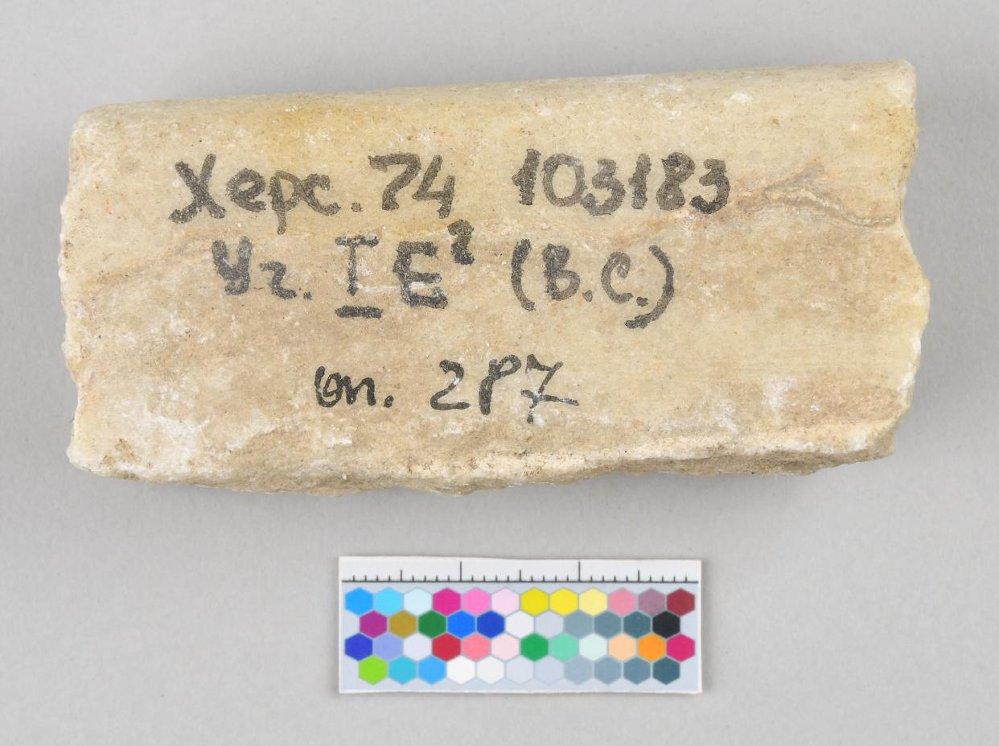 Херс. 74 103183
Уг. I E² (В.С.)
оп. 287